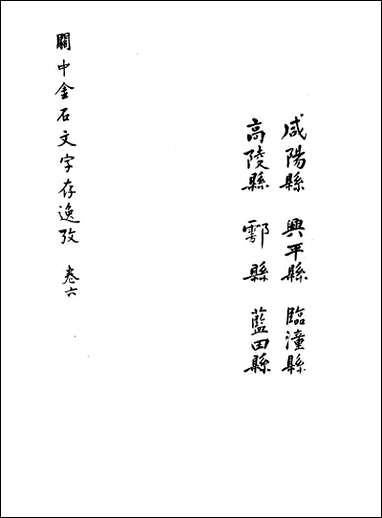 咸陽縣 興平縣 臨潼縣
高陵縣 鄠縣 藍田縣
關中金石文字存逸攷 卷六